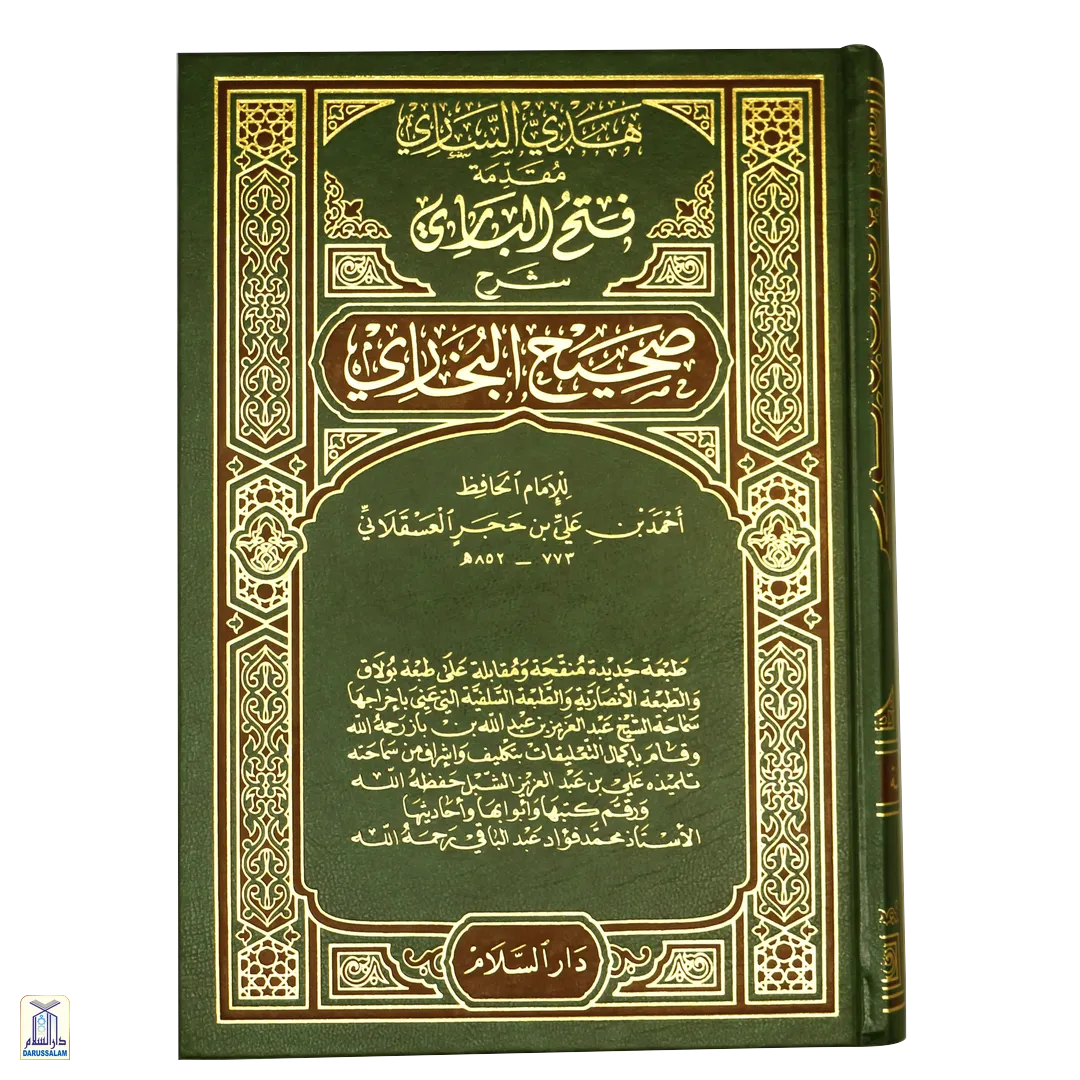 هَدْيُ السَّارِي
مُقَدِّمَة
فَتْحُ البَارِي
شَرْح
صَحِيحُ البُخَارِي
لِلإِمَامِ الحَافِظ
أَحْمَدَ بْنِ عَلِيِّ بْنِ حَجَرٍ الْعَسْقَلَانِيِّ
٧٧٣ - ٨٥٢ هـ
طَبْعَة جَدِيدَة مُنَقَّحَة وَمُقَابلَة عَلىٰ طَبعَة بُولَاق
وَالطَّبْعَة الأَنْصَاريَّة وَالطَّبْعَة السَّلَفِيَّة الَّتِي عُنِيَ بِإخرَاجِهَا
سَمَاحَة الشَّيْخ عَبْد العَزيز بْن عَبْد اللّٰه بْن بَاز رَحِمَهُ اللّٰه
وَقَامَ بِإكمَال التَّعْلِيقَات بتَكْلِيف وَإشرَاف مِن سَمَاحَته
تلميذه عَلي بن عَبْد العَزيز الشّبل حَفِظهُ اللّٰه
وَرَقَّمَ كتبَهَا وَأبوابهَا وَأحَاديثهَا
الأسْتَاذ محمَّد فُؤَاد عَبْد البَاقي رَحِمَهُ اللّٰه
دَار السَّلَام
دار السلام
DARUSSALAM